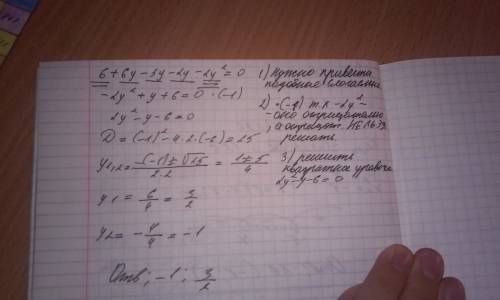 6 + 6y - 3y - 2y - 2y² = 0
-2y² + y + 6 = 0 · (-1)
2y² - y - 6 = 0
D = (-1)² - 4·2·(-6) = 25
y1,2 = -(-1) ± √25 / 2·2 = 1 ± 5 / 4
y1 = 6/4 = 3/2
y2 = -4/4 = -1
Отв; -1; 3/2
1) Нужно привести
подобные слагаемые
2) ·(-1) т.к -2y² -
- оно отрицательно
, а отрицат. НЕЛЬЗЯ
решать
3) решить
квадратное уравнен
2y² - y - 6 = 0